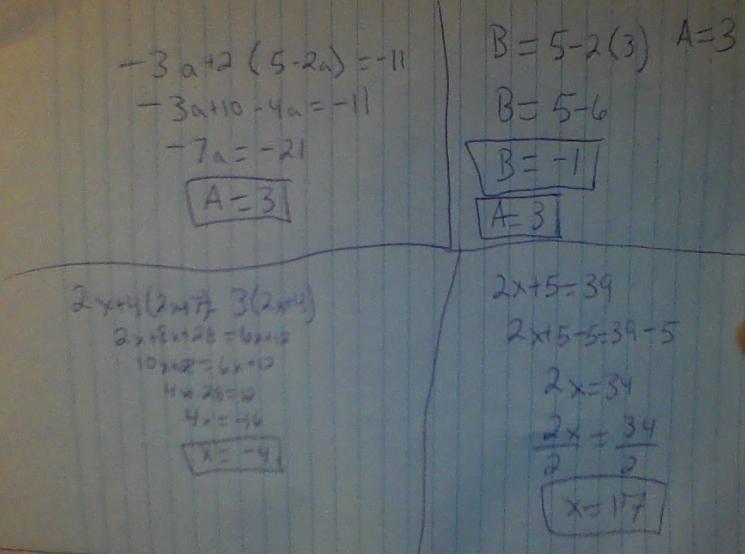 -3a+2(5-2a)=-11
-3a+10-4a=-11
-7a=-21
A=3
B=5-2(3) A=3
B=5-6
B=-1
A=3
2x+4(2x+7)= 3(2x+4)
2x+8x+28=6x+12
10x+28=6x+12
4x+28=12
4x=-16
x=-4
2x+5=39
2x+5-5=39-5
2x=34
2x/2 = 34/2
x=17